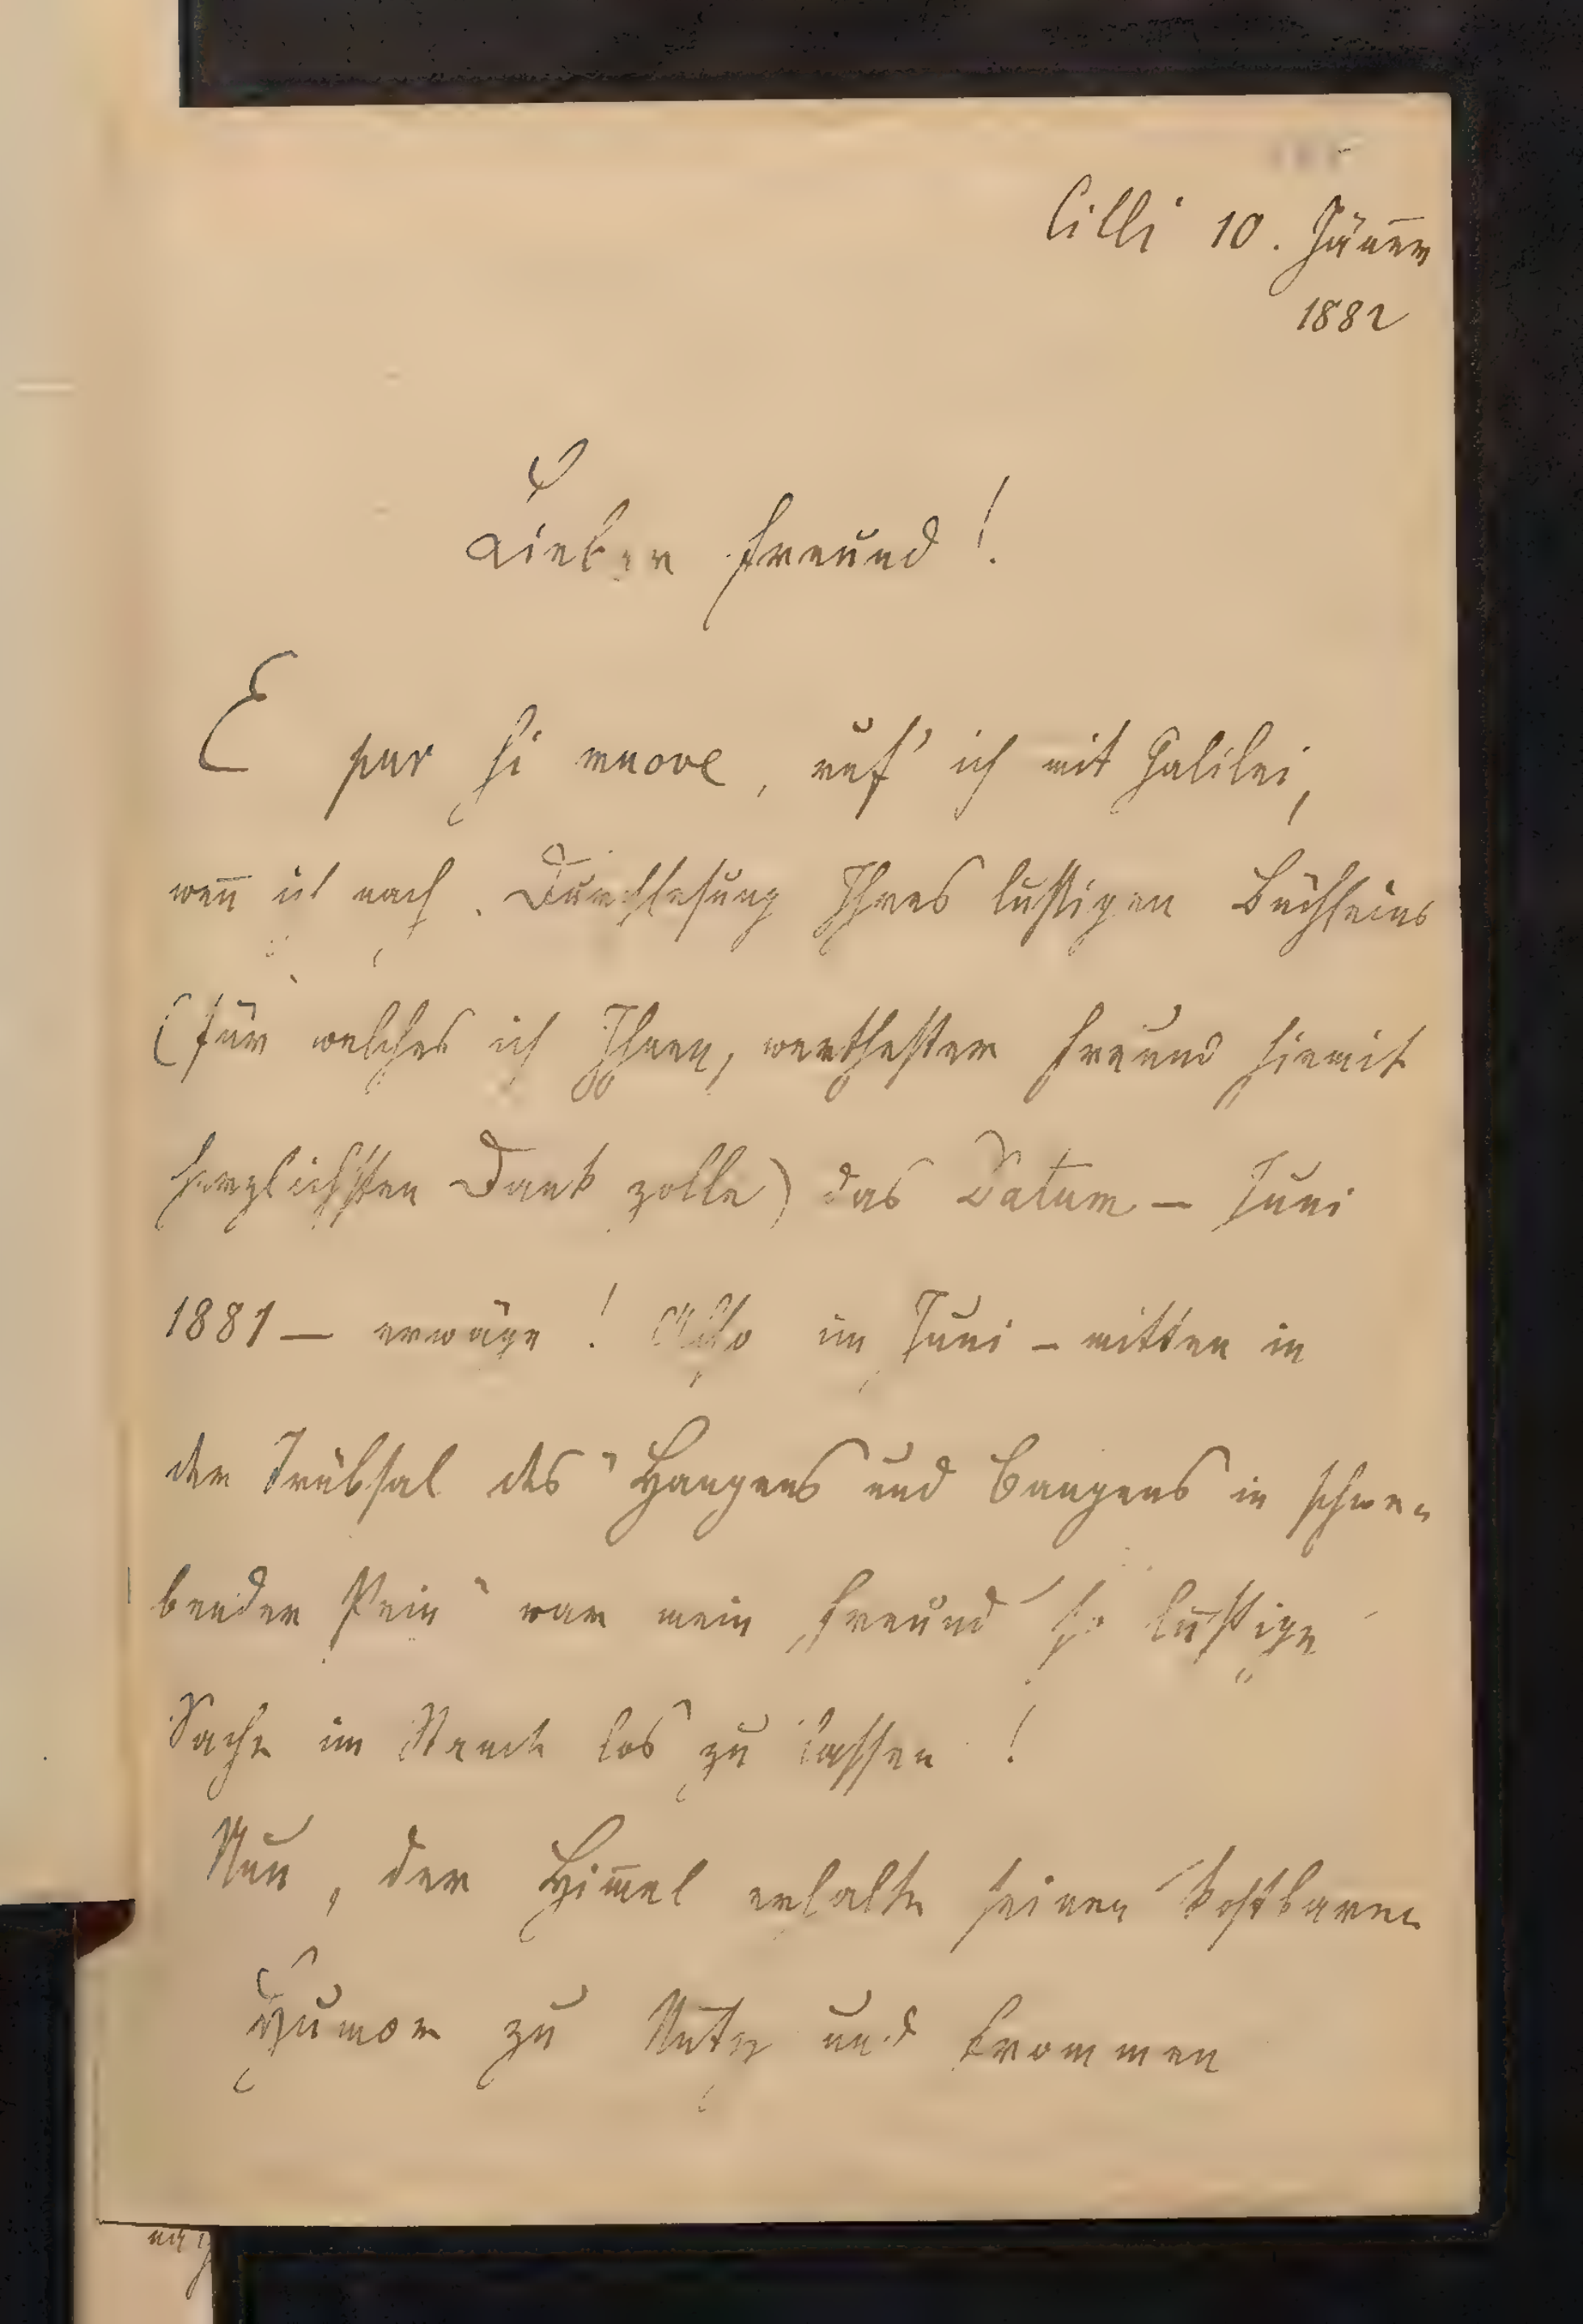 Cilli 10. Jänner
1882
Lieber Freund!
E pur si muove, ruf' ich mit Galilei,
wen̄ ich nach Durchlesung Ihres lustigen Büchleins
(für welches ich Ihnen, werthester Freund hiemit
herzlichsten Dank zolle) das Datum – Juni
1881 – erwäge! Also im Juni – mitten in
der Trübsal des "Hangens und Bangens in schwe-
bender Pein" war mein Freund so lustige
Sache im Druck los zu lassen!
Nun, der Him̄el erhalte seinen kostbaren
Humor zu Nutz und Frommen